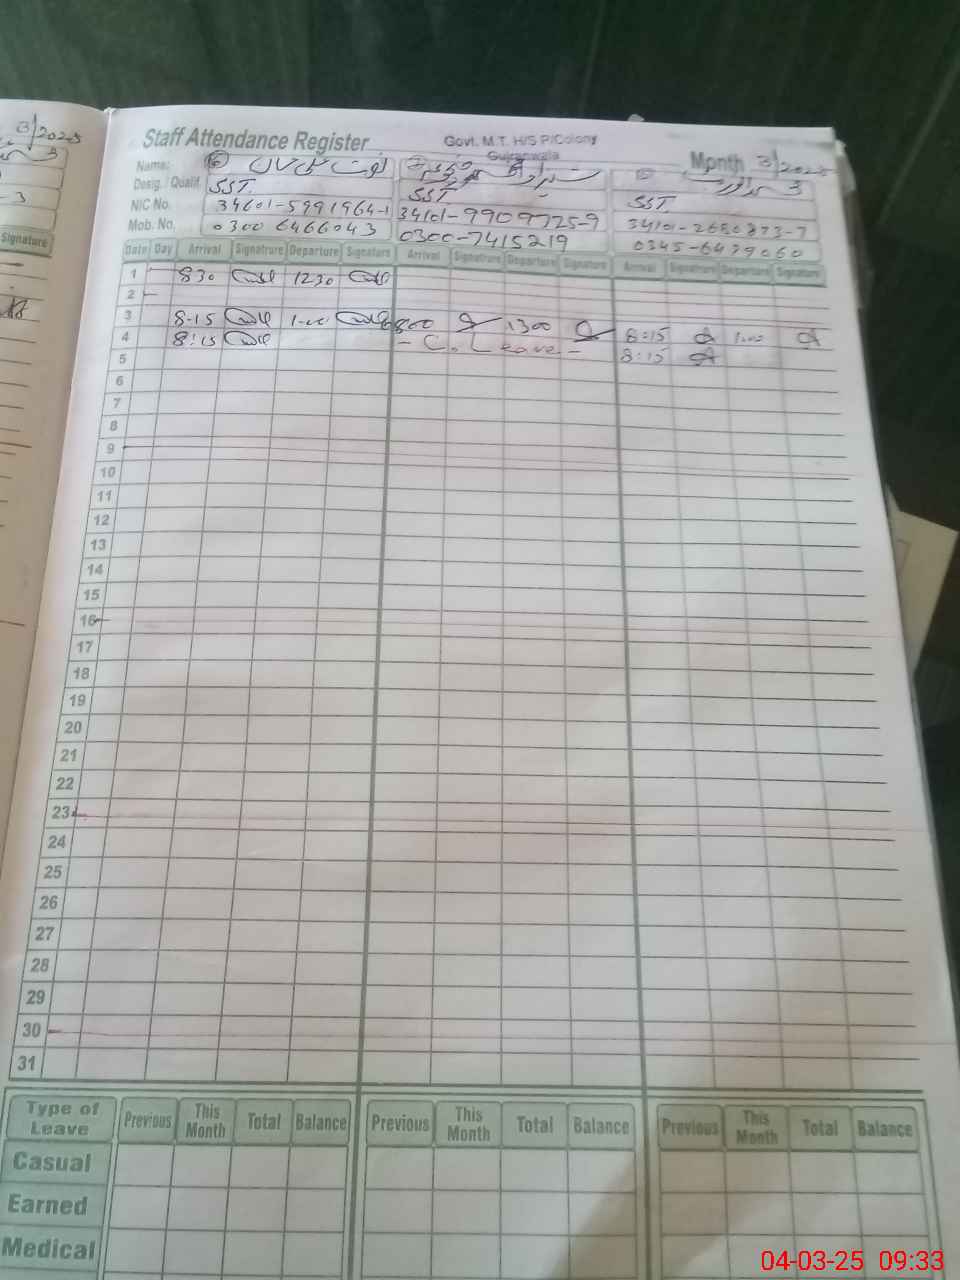 3/2025
Signature
Staff Attendance Register
Govt. M.T. H/S P/Colony
Gujranwala
Month 3/2025
Name:
Desig./Qualif. SST. SST SST.
NIC No. 34601-5991964-1 34101-9909725-9 34101-2680873-7
Mob. No. 0300 6466043 0300-7415219 0345-6479060
Date Day Arrival Signatrure Departure Signature Arrival Signatrure Departure Signature Arrival Signatrure Departure Signature
1 830 1230
2
3 8-15 1-00 800 1300 8:15 1:00
4 8:15 - C. Leave - 8:15
5
6
7
8
9
10
11
12
13
14
15
16
17
18
19
20
21
22
23
24
25
26
27
28
29
30
31
Type of Leave Previous This Month Total Balance Previous This Month Total Balance Previous This Month Total Balance
Casual
Earned
Medical
04-03-25 09:33